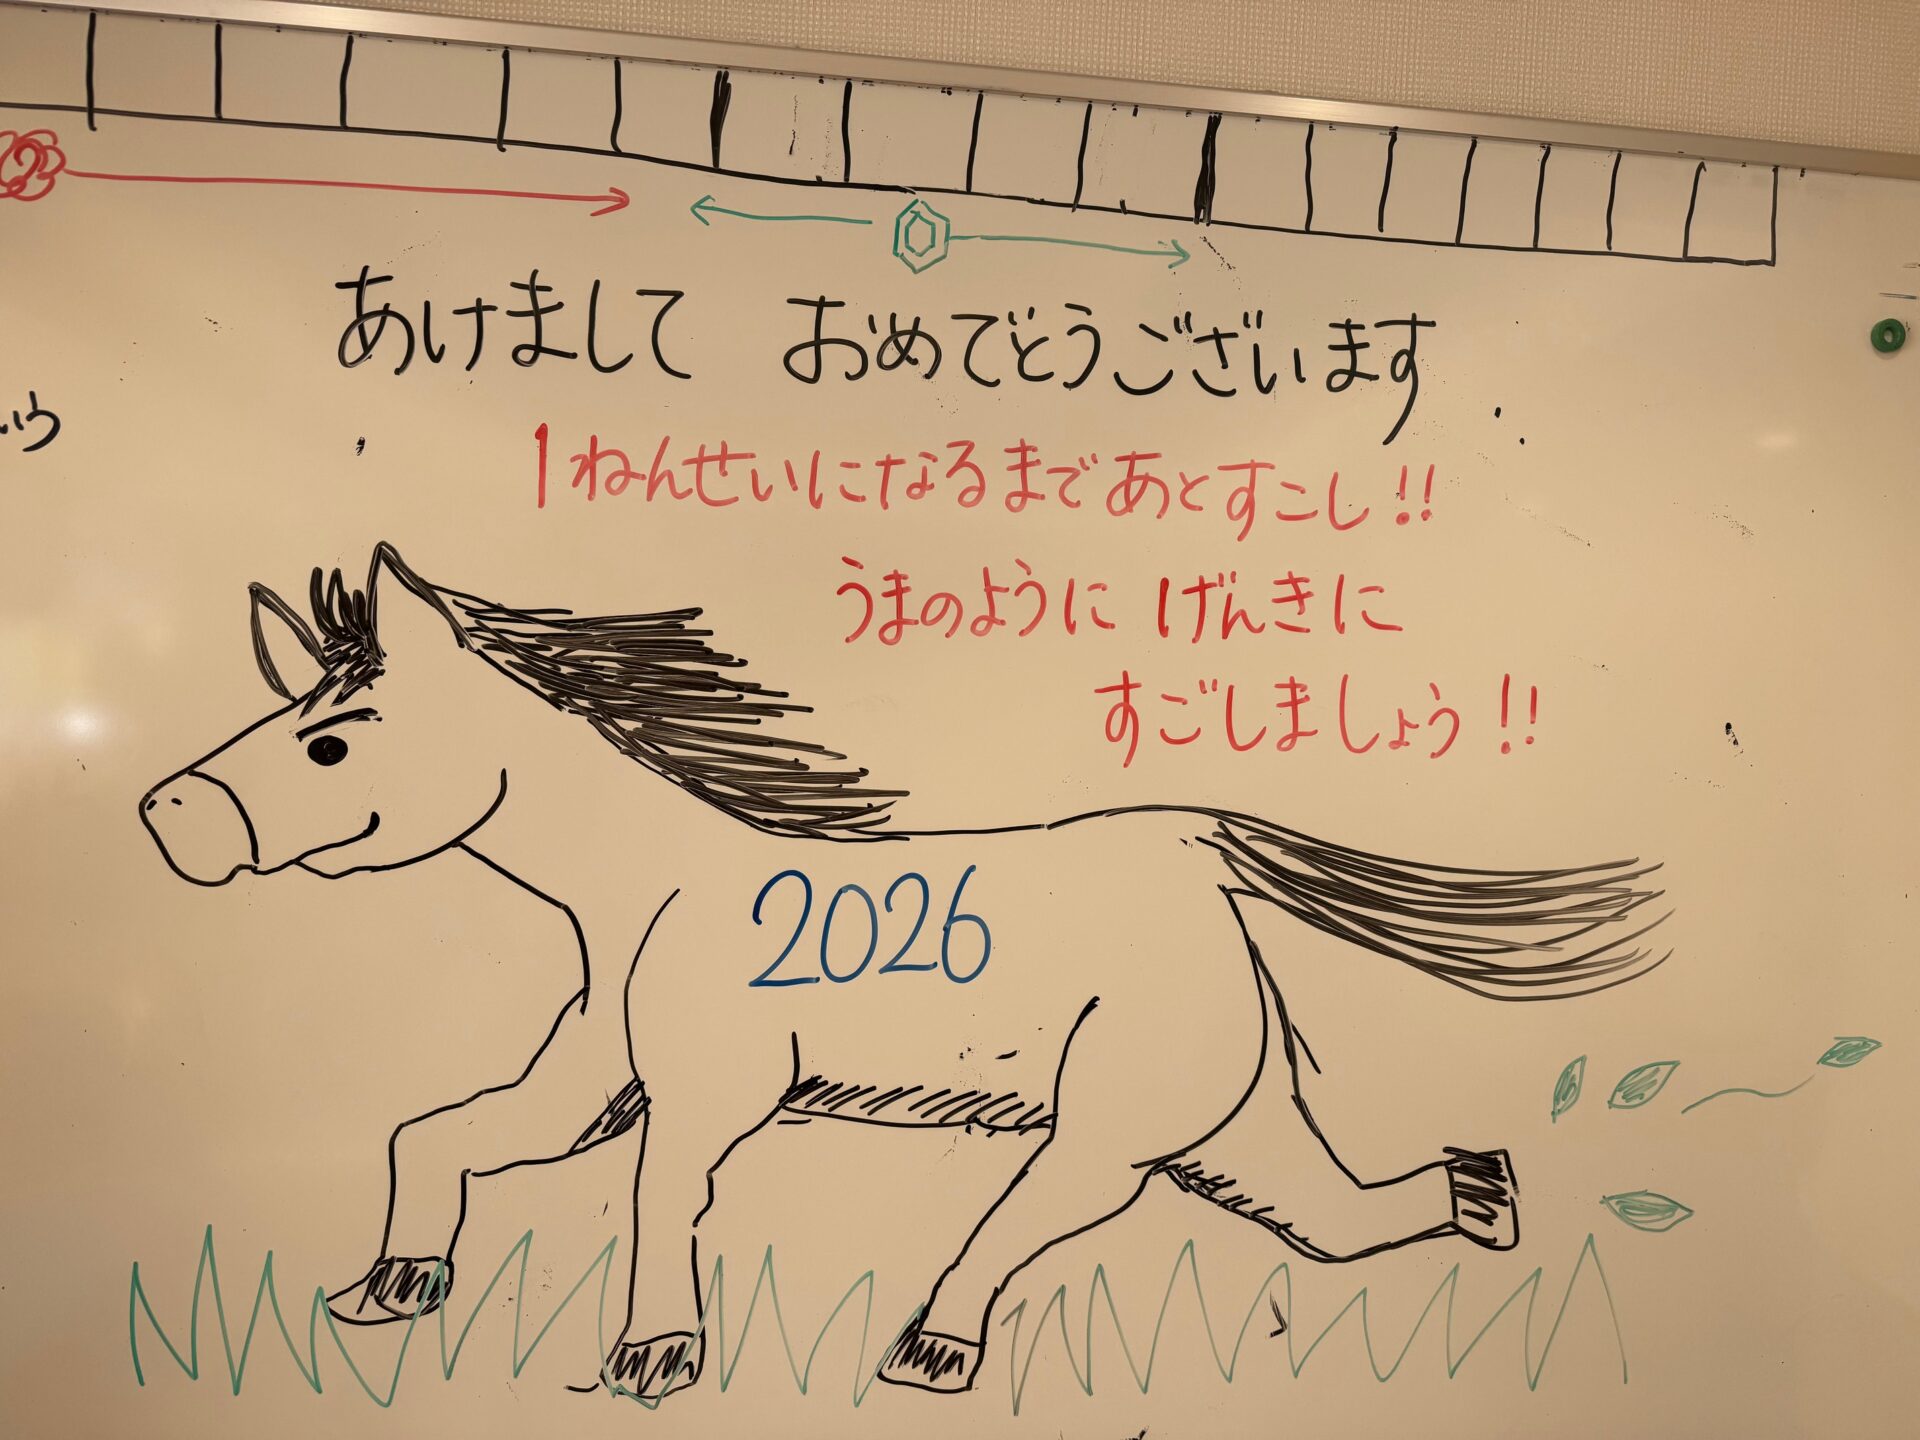 あけまして おめでとうございます
1ねんせいになるまであとすこし!!
うまのように げんきに
すごしましょう!!
2026